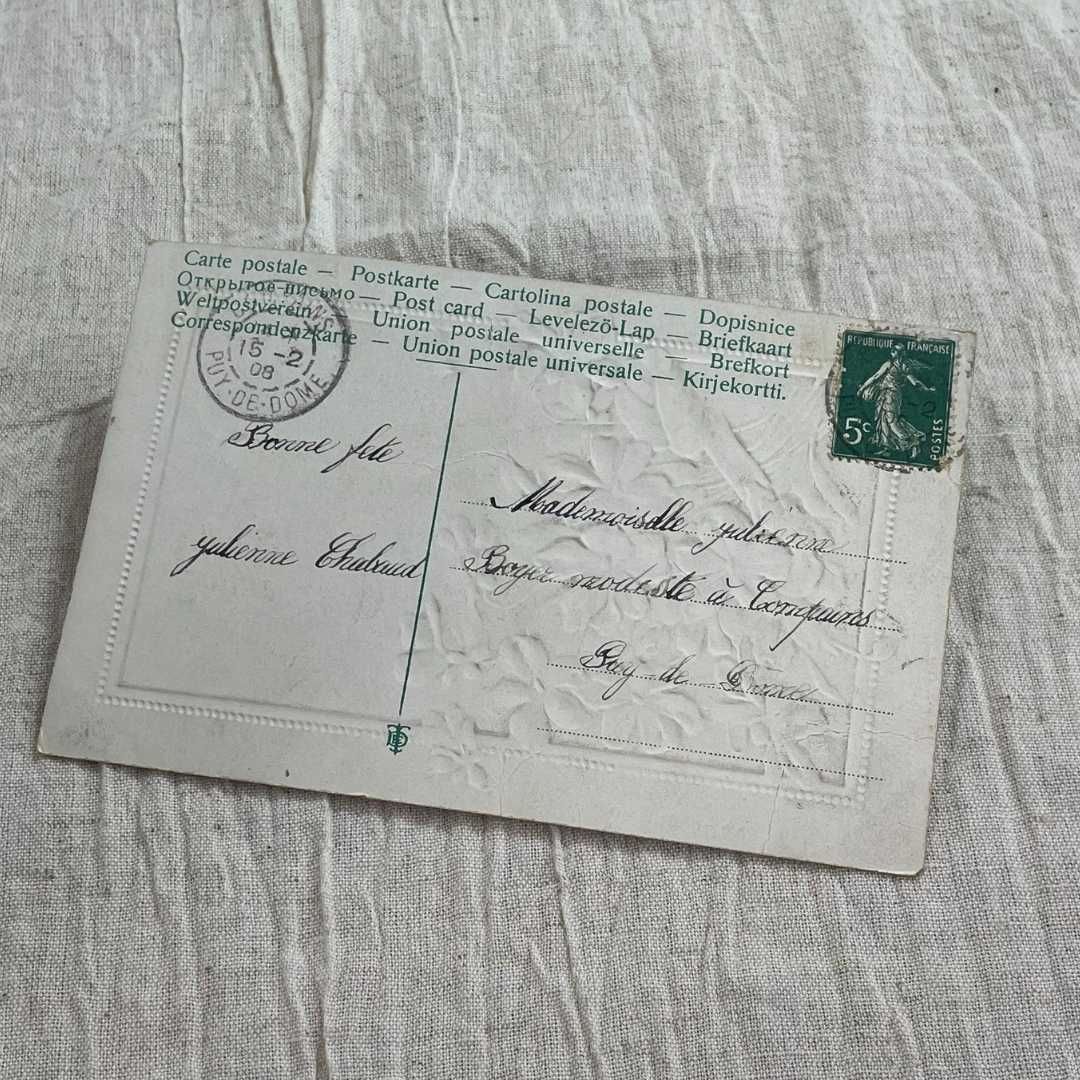 Carte postale — Postkarte — Cartolina postale — Dopisnice
Открытое письмо — Post card — Levelezö-Lap — Briefkaart
Weltpostverein — Union postale universelle — Brefkort
Correspondenzkarte — Union postale universale — Kirjekortti.
15 -2
08
PUY-DE-DOME
REPUBLIQUE FRANÇAISE
5c
POSTES
Bonne fete
yulienne Chabaud
Mademoiselle yulienne
Boyer modeste à Compains
Puy de Dome